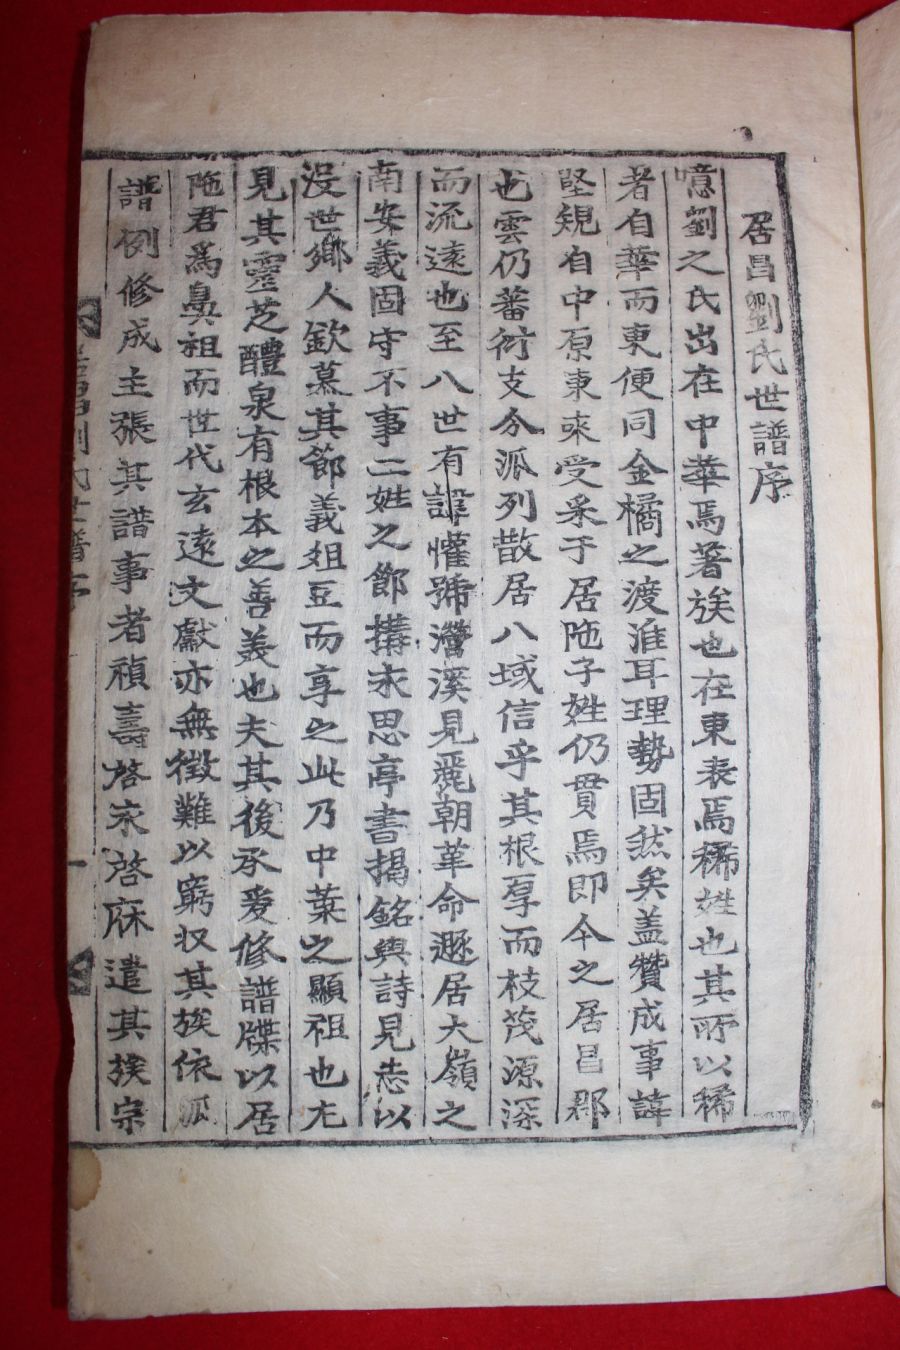 居昌劉氏世譜序
噫劉之氏出在中華焉著族也在東表焉稀姓也其所以稀
者自華而東便同金橘之渡淮耳理勢固然矣盖贊成事諱
堅規自中原東来受采于居陁子姓仍貫焉即今之居昌郡
也雲仍蕃衍支分派列散居八域信乎其根厚而枝茂源深
而流遠也至八世有諱懽號灣溪見麗朝革命遯居大嶺之
南安義固守不事二姓之節搆永思亭書揭銘與詩見志以
沒世鄉人欽慕其節義俎豆而享之此乃中葉之顯祖也尤
見其靈芝醴泉有根本之善美也夫其後承爰修譜牒以居
陁君爲鼻祖而世代玄遠文獻亦無徵難以窮收其族依派
譜例修成主張其譜事者禎壽啓永啓庥遣其族宗
居昌劉氏世譜序
一